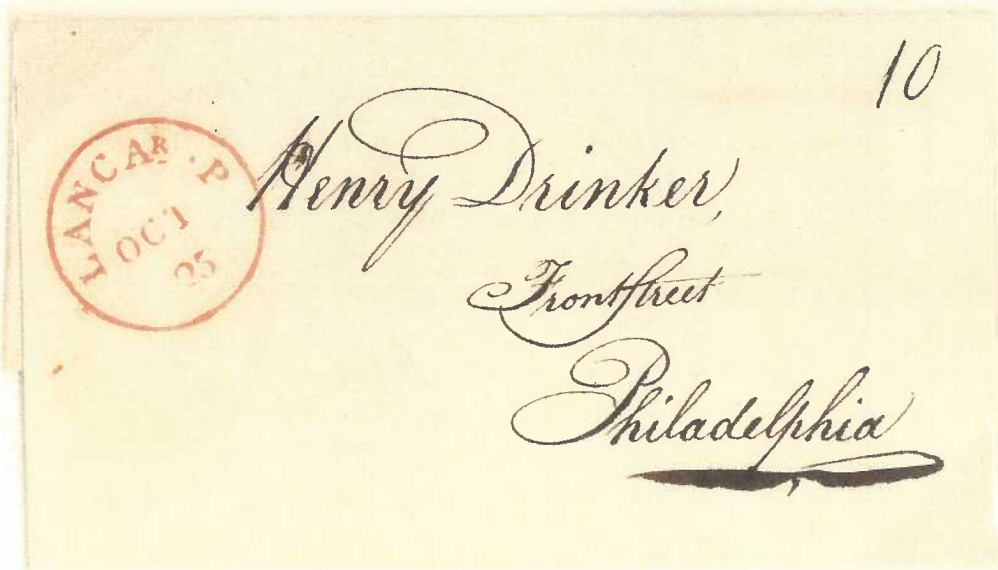 10
LANCAR. P
OCT
25
Henry Drinker,
Front Street
Philadelphia